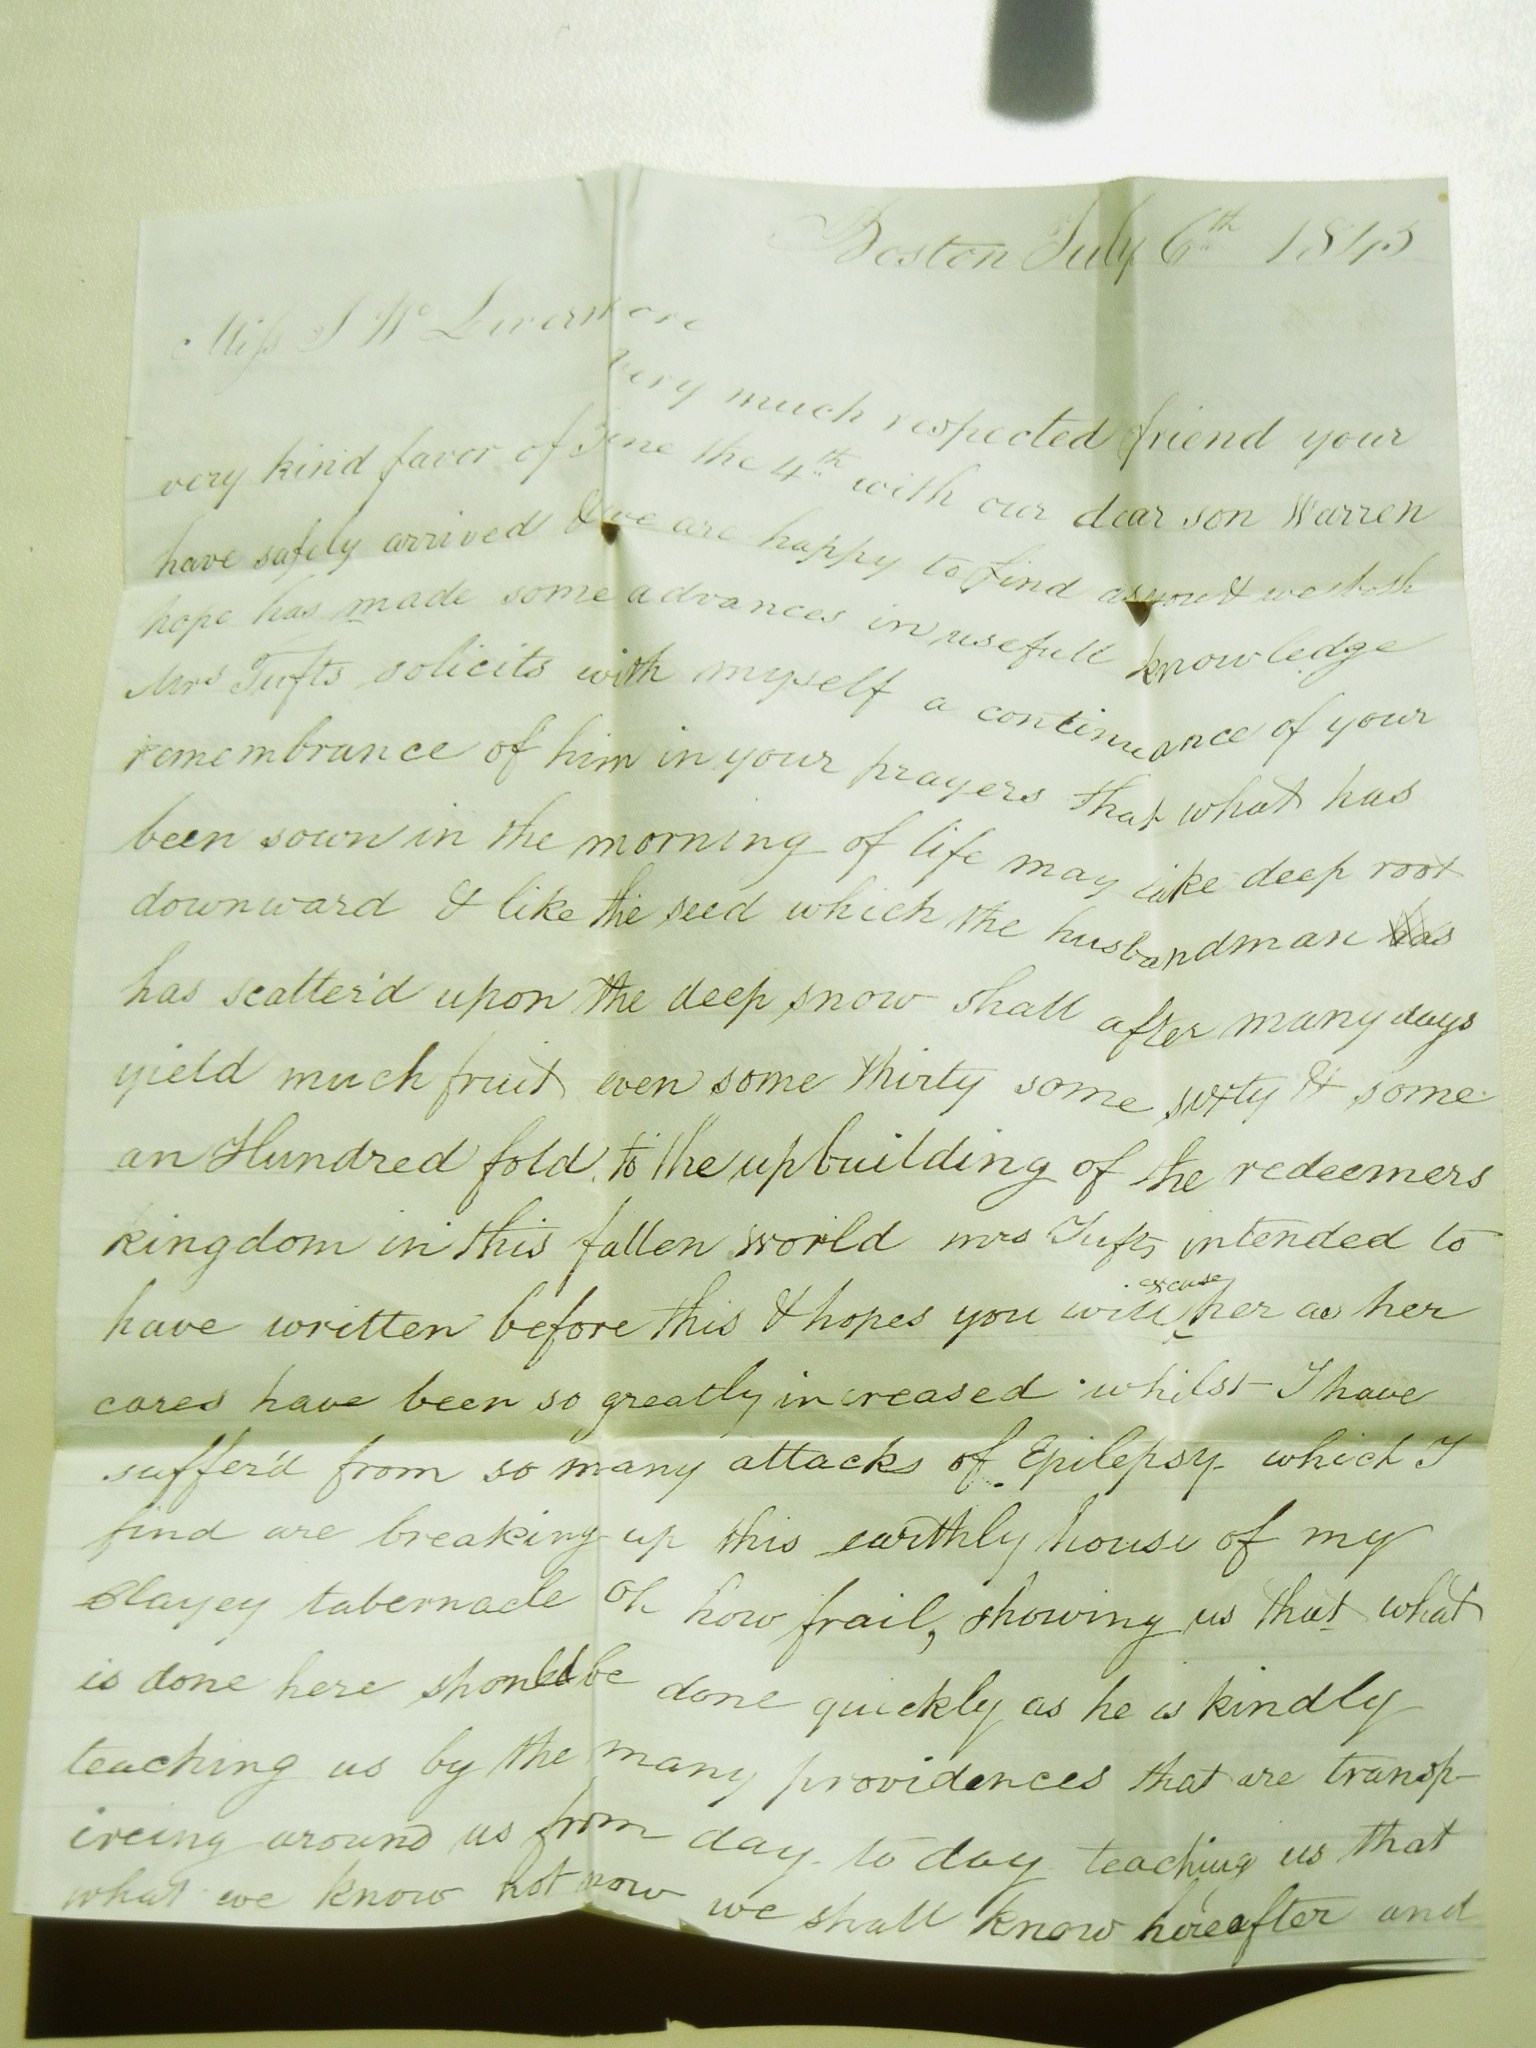 Boston July 6th 1843
Miss S W Livermore
Very much respected friend your
very kind favor of June the 4th with our dear son Warren
have safely arrived & we are happy to find as you & we both
hope has made some advances in usefull knowledge
Mrs Tufts solicits with myself a continuance of your
remembrance of him in your prayers that what has
been sown in the morning of life may take deep root
downward & like the seed which the husbandman has
has scatter'd upon the deep snow shall after many days
yield much fruit even some thirty some sixty & some
an Hundred fold, to the upbuilding of the redeemers
kingdom in this fallen world mrs Tufts intended to
have written before this & hopes you will excuse her as her
cares have been so greatly increased whilst I have
suffer'd from so many attacks of Epilepsy which I
find are breaking up this earthly house of my
Clayey tabernacle Oh how frail, showing us that what
is done here should be done quickly as he is kindly
teaching us by the many providences that are transp-
ireing around us from day to day teaching us that
what we know not now we shall know hereafter and